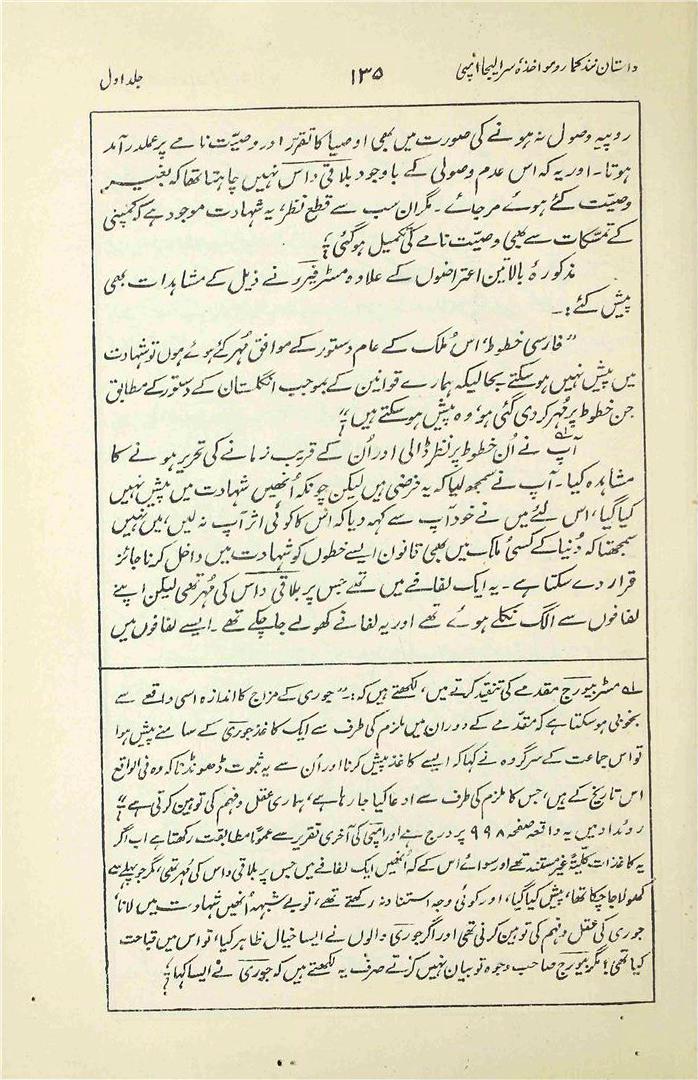 داستان نند کمار و مواخذۂ سر ایلیجا امپی
۱۳۵
جلد اول
روپیہ وصول نہ ہونے کی صورت میں بھی اوصیا کا تقرّر اور وصیّت نامے پر عملدرآمد
ہوتا۔ اور یہ کہ اس عدم وصولی کے باوجود بلاقی داس نہیں چاہتا تھا کہ بغیر
وصیّت کئے ہوئے مر جائے۔ مگر ان سب سے قطع نظر، یہ شہادت موجود ہے کہ کمپنی
کے تمسّکات سے بھی وصیّت نامے کی تکمیل ہو گئی؟“
مذکورۂ بالا تین اعتراضوں کے علاوہ مسٹر فیرر نے ذیل کے مشاہدات بھی
پیش کئے:۔
”فارسی خطوط، اس مُلک کے عام دستور کے موافق مُہر کئے ہوئے ہوں تو شہادت
میں پیش نہیں ہو سکتے بحالیکہ ہمارے قوانین کے بموجب انگلستان کے دستور کے مطابق
جن خطوط پر مُہر کر دی گئی ہو، وہ پیش ہو سکتے ہیں“
آپ نے اُن خطوط پر نظر ڈالی اور اُن کے قریب زمانے کی تحریر ہونے کا
مشاہدہ کیا۔ آپ نے سمجھ لیا کہ یہ فرضی ہیں لیکن چونکہ اُنھیں شہادت میں پیش نہیں
کیا گیا، اس لئے میں نے خود آپ سے کہہ دیا کہ اُس کا کوئی اثر آپ نہ لیں، میں نہیں
سمجھتا کہ دُنیا کے کسی ملک میں بھی قانون ایسے خطوں کو شہادت میں داخل کرنا جائز
قرار دے سکتا ہے۔ یہ ایک لفافے میں تھے جس پر بلاقی داس کی مُہر تھی لیکن اپنے
لفافوں سے الگ نکلے ہوئے تھے اور یہ لفافے کھولے جا چکے تھے۔ ایسے لفافوں میں
؎۱ مسٹر بیورج مقدمے کی تنقید کرتے میں، لکھتے ہیں کہ:۔ ”جوری کے مزاج کا اندازہ اسی واقعے سے
بخوبی ہو سکتا ہے کہ مقدّمے کے دوران میں ملزم کی طرف سے ایک کاغذ جوری کے سامنے پیش ہوا
تو اس جماعت کے سرگروہ نے کہا کہ ایسے کاغذ پیش کرنا اور اُن سے یہ ثبوت ڈھونڈنا کہ وہ فی الواقع
اس تاریخ کے ہیں، جس کا ملزم کی طرف سے ادعا کیا جا رہا ہے، ہماری عقل و فہم کی توہین کرتی ہے“
روئداد میں یہ واقعہ صفحہ ۹۹۸ پر درج ہے اور امپی کی آخری تقریر سے عموماً مطابقت رکھتا ہے اب اگر
یہ کاغذات کلیّتہً غیر مستند تھے اور سوائے اُس کے کہ اُنھیں ایک لفافے میں جس پر بلاقی داس کی مُہر تھی، مگر جو پہلے سے
کھولا جا چکا تھا، پیش کیا گیا، اور کوئی وجہ استناد نہ رکھتے تھے، تو بے شبہہ اُنھیں شہادت میں لانا،
جوری کی عقل و فہم کی توہین کرنی تھی اور اگر جوری والوں نے ایسا خیال ظاہر کیا، تو اس میں قباحت
کیا تھی؟ مگر بیورج صاحب وجوہ تو بیان نہیں کرتے صرف یہ لکھتے ہیں کہ جوری نے ایسا کہا؟